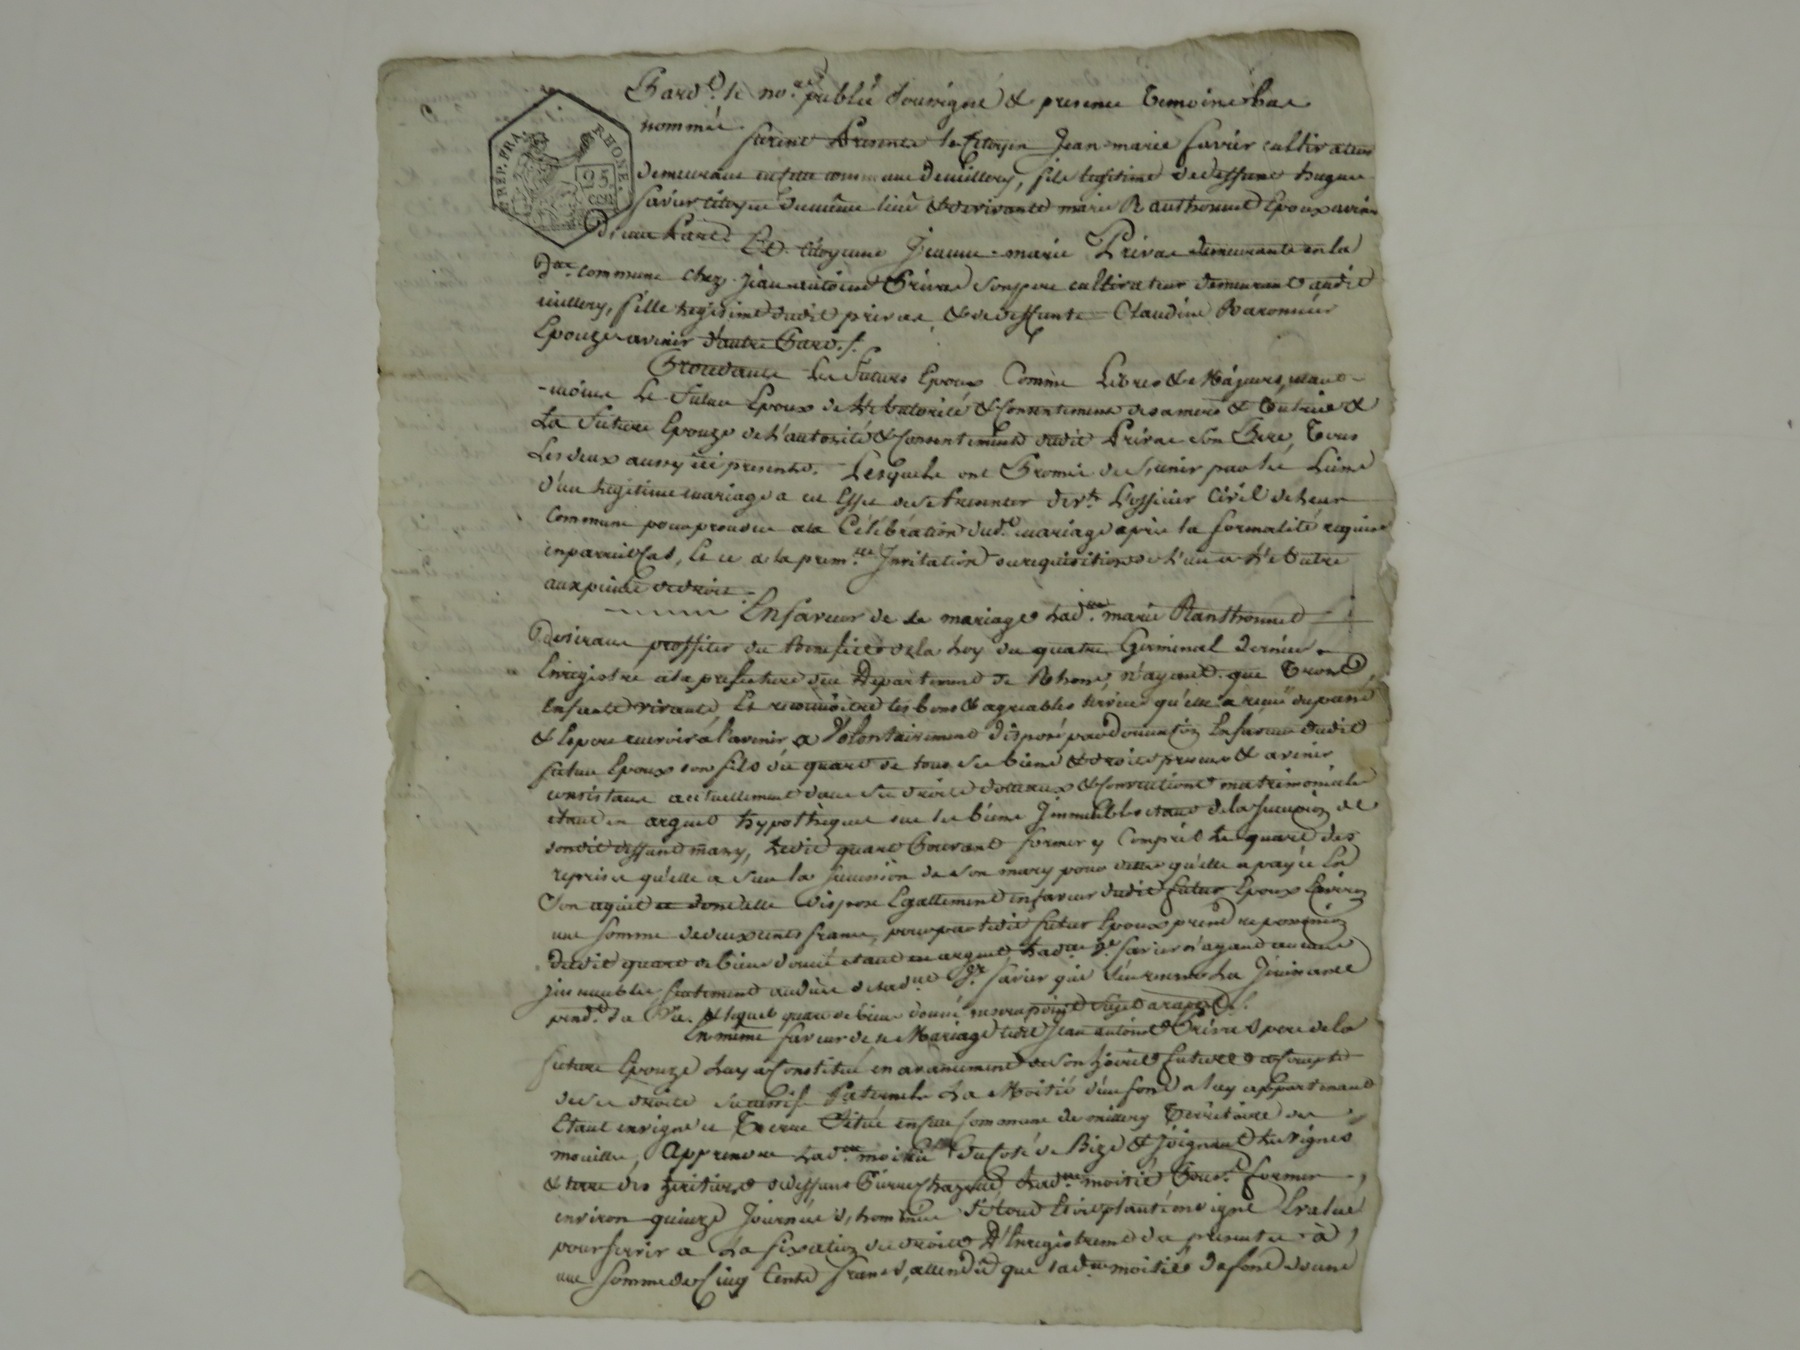 RÉP. FRA.
RHONE.
25
CEN.
Pard.t le no.re publie soussigné & presence temoins bas
nommés
furent Presents le Citoyen Jean marie favier cultivateur
demeurant en cette commune de millery, fils legitime de deffunt hugue
favier citoyen du même lieu & de vivante marie Ranthonnet Epoux avenir
d'une Part.
Et citoyenne Jeanne marie Privas demeurante en la
d.te commune chez Jean antoine Privas son pere cultivateur demeurant audit
millery, fille legitime dudit privas & de deffunte Claudine Baronnier
Epouze avenir d'autre Part.
Procedants les futurs Epoux Comme Libres & Majeurs,
moins Le futur Epoux de l'autorité & Consentement de sa mere &
La future Epouze de l'autorité & Consentement dudit Privas son Pere, Tous
Les deux aussy ici presents. Lesquels ont Promis de s'unir par les Liens
d'un legitime mariage a cet Effet de se Presenter dev.t L'officier Civil de leur
Commune pour proceder a la Célébration dud.t mariage après la formalité requise
en pareil Cas, Et ce a la prem.re Invitation ou requisition de l'un a l'autre
aux peines de droit.
En faveur de ce mariage lad.te marie Ranthonnet
desirant proffiter du Benefice de la loy du quatre Germinal dernier
Enregistré a la prefecture du Département du Rhone, n'ayant que Trois
Enfants vivants Et reconnoitre les bons & agreables services qu'elle a reçus du passé
& Espere recevoir a l'avenir a Volontairement disposé par donnation En faveur dudit
futur Epoux son fils du quart de tous ses biens & droits presents & avenir
consistant actuellement dans ses droits dotaux & Conventions matrimoniales
étant en argent hypothequé sur les biens Immeubles étant de la succession de
sondit deffunt mary, ledit quart Pouvant former y Compris le quart des
reprises qu'elle a sur la succession de son mary pour dettes qu'elle a payée En
Son aquit dispose Egallement en faveur dudit futur Epoux Environ
une somme de deux cents francs, pour par ledit futur Epoux prendre possession
dudit quart de biens donné étant en argent, lad.te favier n'ayant aucuns
Immeubles favier qui s'en reserve La Jouissance
pend.t sa Vie. & lequel quart de biens donné ne sera point sujet a raport.
En même faveur de ce Mariage ledit Jean antoine Privas pere de la
future Epouze Luy a Constitué en avancement de son hoirie future & a Compte
de ses droits successifs Paternels La Moitié d'un fond a luy appartenant
Etant en vigne & Terre Situé en cette Commune de millery Territoire de
mouille, A prendre lad.te moitié du Coté de Bize & Joignant les vignes
& terre des heritiers de deffunt Pierre Chazelle lad.te moitié Pouv.t former
environ quinze Journées d'hommes le tout Etant planté en vigne Evalué
pour servir a La fixation des droits d'Enregistrement des presentes à
une somme de Cinq Cents francs, attendu que lad.te moitié de fond donné